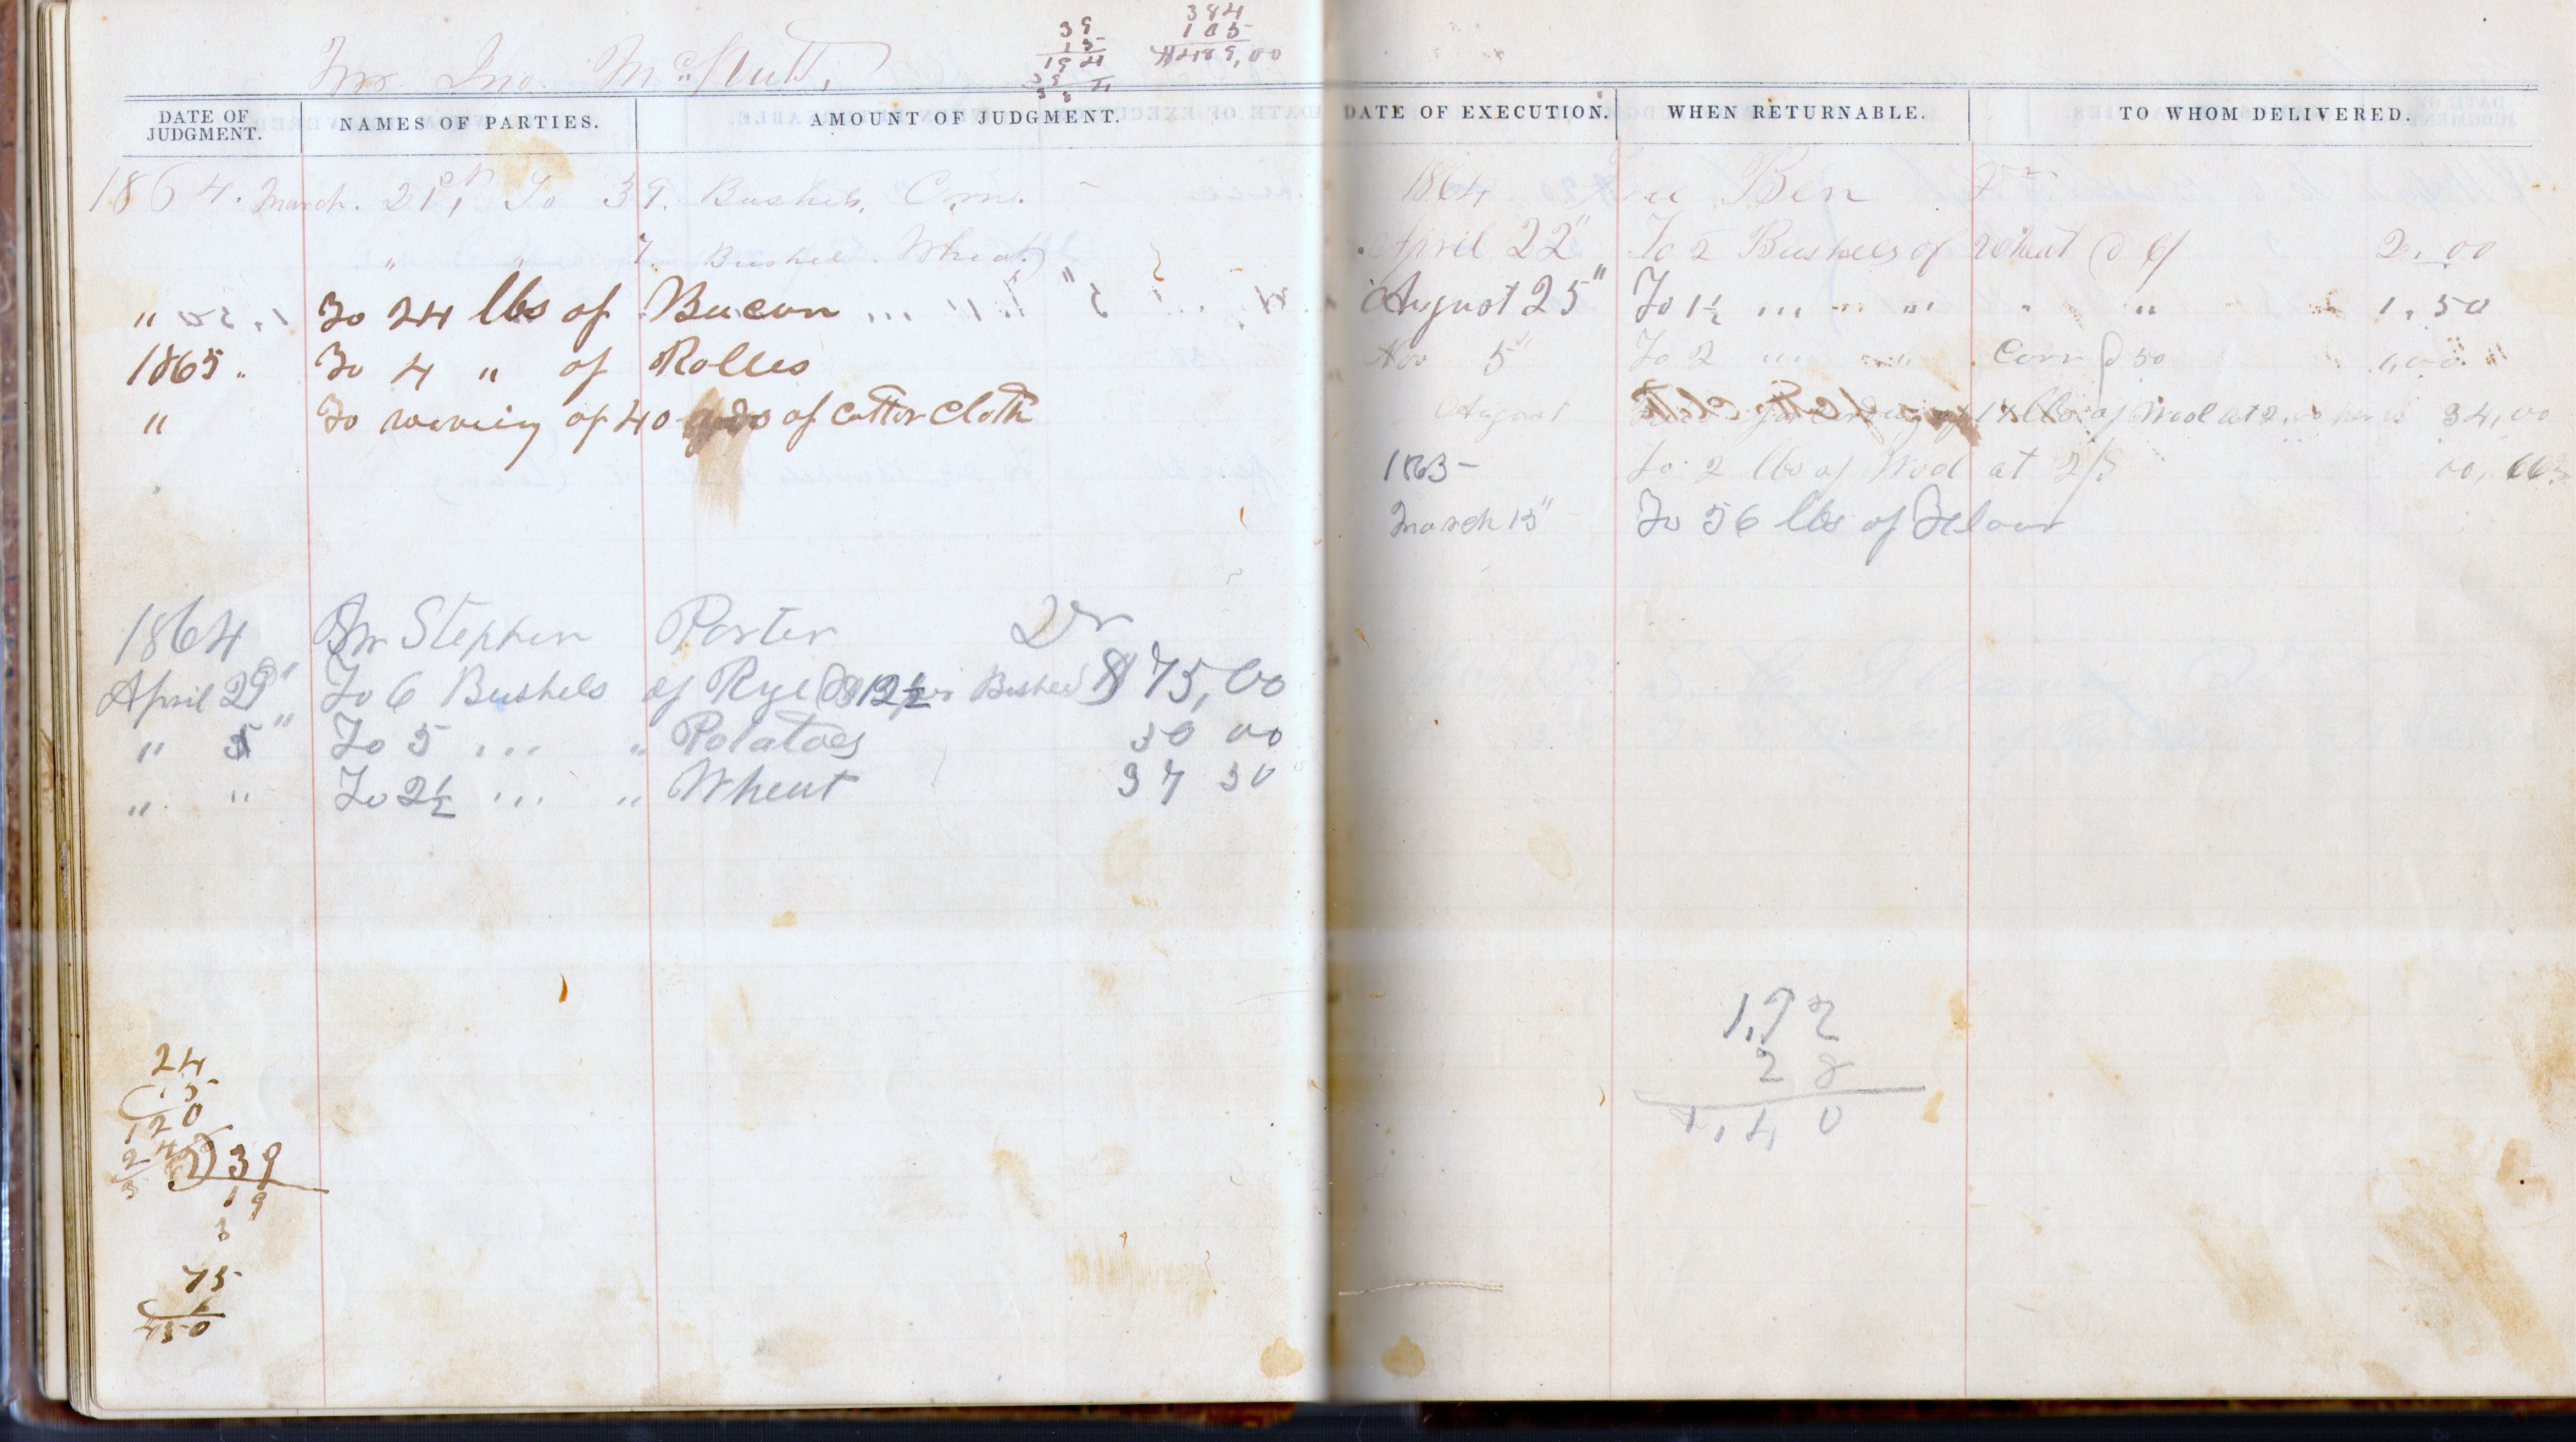 Jno. Mc
39
15
194
39
384
105
$489,00
DATE OF JUDGMENT.
NAMES OF PARTIES.
AMOUNT OF JUDGMENT.
1864. March. 21st, To 39. Bushels, Corn.
" " 7. Bushel. Wheat
" To 24 lbs of Bacon
1865 " To 4 " of Rolles
" To weving of 40 yds of Cotton Cloth
1864 Mr Stephen Porter Dr
April 29" To 6 Bushels of Rye @ $12½ per Bushel $75,00
" 5" To 5 ,,, " Potatoes 30 00
" " To 2½ ,,, " Wheat 37 50
24
15
120
24
2)39
19
3
75
6
450
DATE OF EXECUTION.
WHEN RETURNABLE.
TO WHOM DELIVERED.
1864 Ben Dr
April 22" To 2 Bushels of Wheat @ 6/ 2,00
August 25" To 1½ ,,, ,,, " " " 1,50
Nov 5" To 2 ,,, " Corn @ 50 1,00
August of 17 lbs of Wool at 2,00 34,00
1863 - To 2 lbs of Wool at 2/ 00,66
March 15" To 56 lbs of Flour
1,92
28
1,40